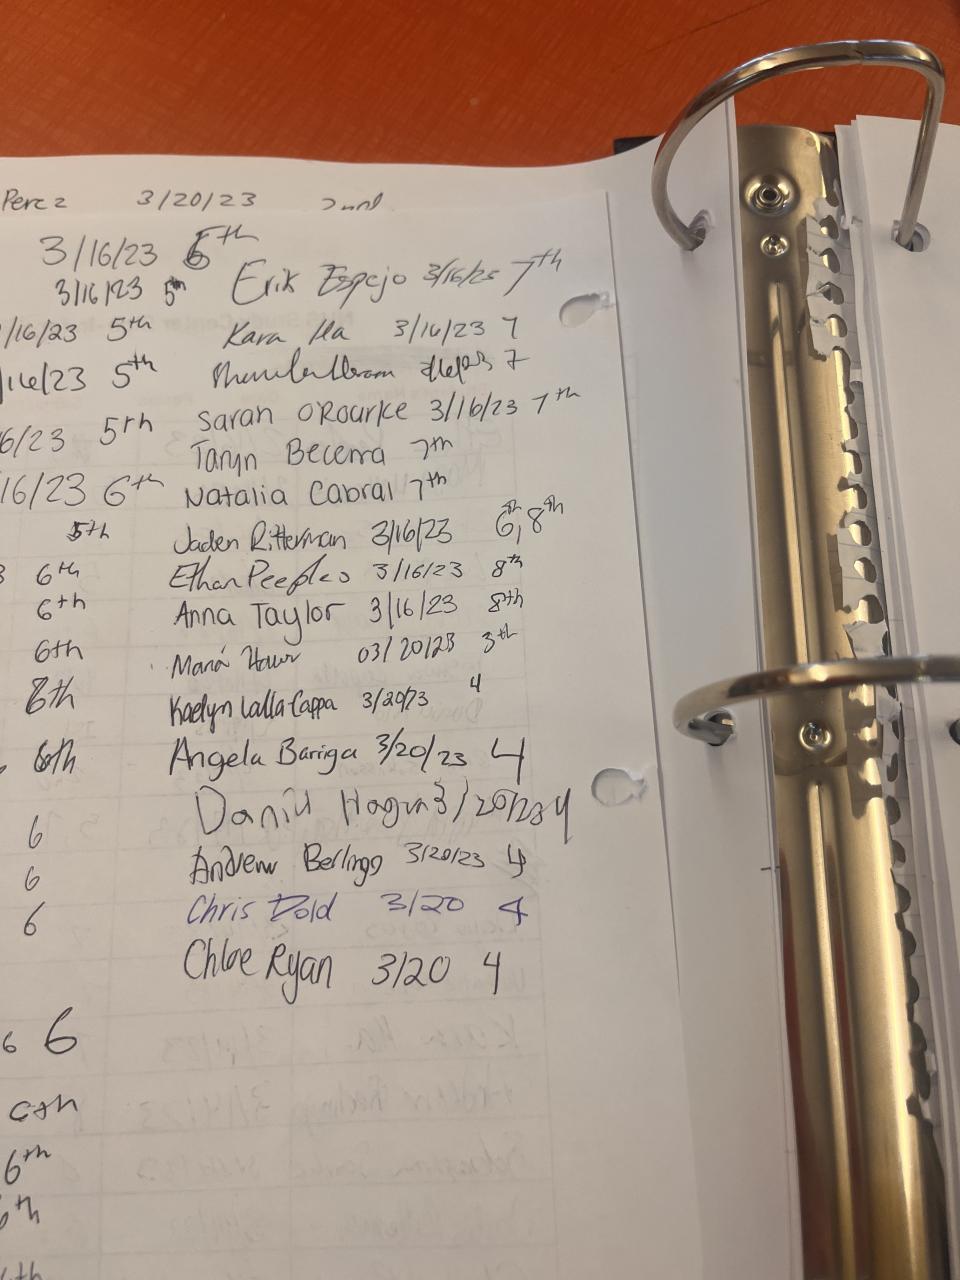 Perez 3/20/23 2nd
3/16/23 6th
3/16/23 5th Erik Espejo 3/16/23 7th
/16/23 5th Kara Ha 3/16/23 7
/16/23 5th 7
6/23 5th Sarah O'Rourke 3/16/23 7th
Taryn Becerra 7th
16/23 6th Natalia Cabral 7th
5th Jaden Ritterman 3/16/23 6th, 8th
3 6th Ethan Peeples 3/16/23 8th
6th Anna Taylor 3/16/23 8th
6th 03/20/23 3th
8th Kaelyn LallaCappa 3/20/23 4
6th Angela Bariga 3/20/23 4
Daniel Hogan 3/20/23 4
6
6 Andrew Berlingo 3/20/23 4
6 Chris Dold 3/20 4
Chloe Ryan 3/20 4
6 6
6th
6th
6th
6th